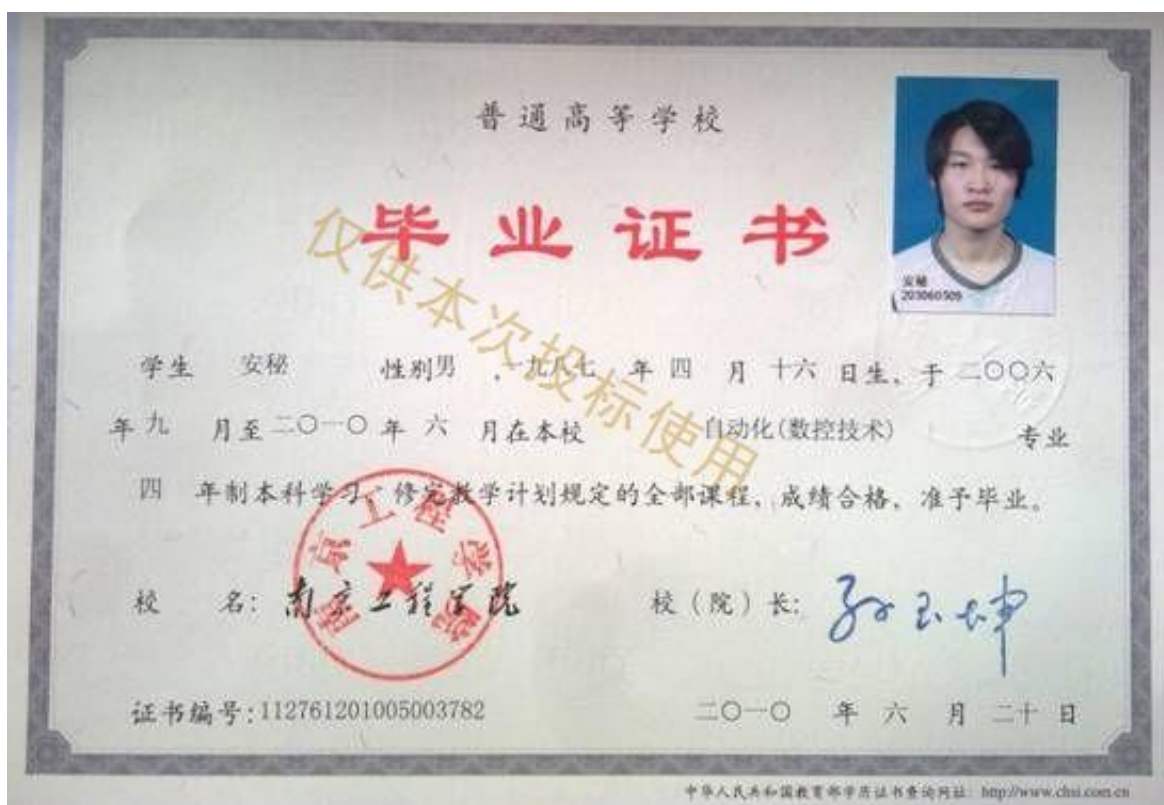 普通高等学校
毕业证书
安秘
203060509
仅供本次投标使用
学生 安秘 性别男 ,一九八七 年 四 月 十六 日生、于 二〇〇六
年 九 月至 二〇一〇 年 六 月在本校 自动化(数控技术) 专业
四 年制本科学习,修完教学计划规定的全部课程、成绩合格、准予毕业。
南京工程学院
校 名: 南京工程学院 校(院)长: 孙玉坤
证书编号:112761201005003782 二〇一〇 年 六 月 二十 日
中华人民共和国教育部学历证书查询网址: http://www.chsi.com.cn